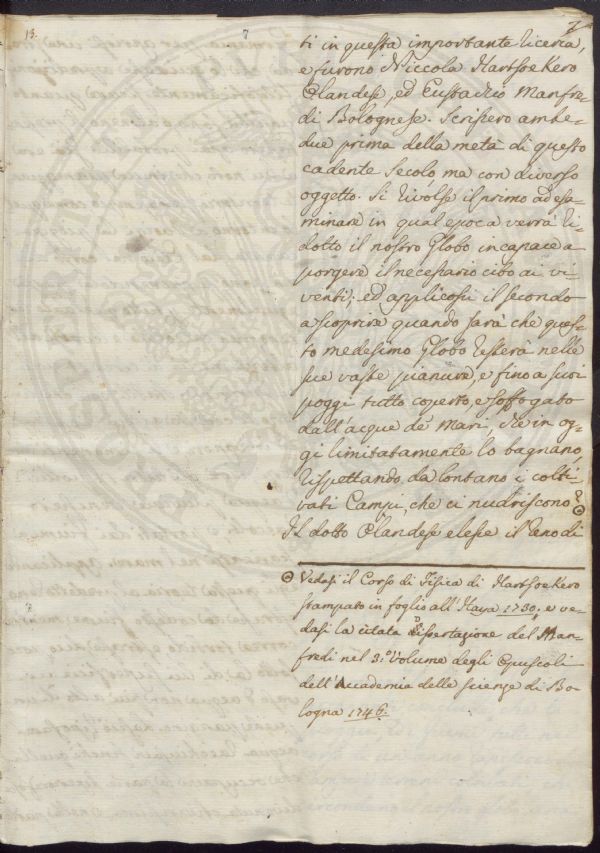 13.
7
7
ti in questa importante ricerca,
e furono Niccola Hartsoekero
Olandese, ed Eustachio Manfre-
di Bolognese. Scrissero ambe-
due prima della metà di questo
cadente Secolo, ma con diverso
oggetto. Si rivolse il primo ad esa-
minare in qual epoca verrà ri-
dotto il nostro Globo incapace a
porgere il necessario cibo ai vi-
venti; ed applicossi il secondo
a scoprire quando sarà che ques-
to medesimo Globo resterà nelle
sue vaste pianure, e fino a suoi
poggi tutto coperto, e soffogato
dall'acque de' Mari, che in og-
gi limitatamente lo bagnano,
rispettando da lontano i colti-
vati Campi, che ci nudriscono?
Il dotto Olandese elesse il Reno di
Vedasi il Corso di Fisica di Hartsoekero
stampato in foglio all'Haya 1730; e ve-
dasi la citata Dissertazione del Man-
fredi nel 3.º Volume degli Opuscoli
dell'Accademia delle Scienze di Bo-
logna 1746.